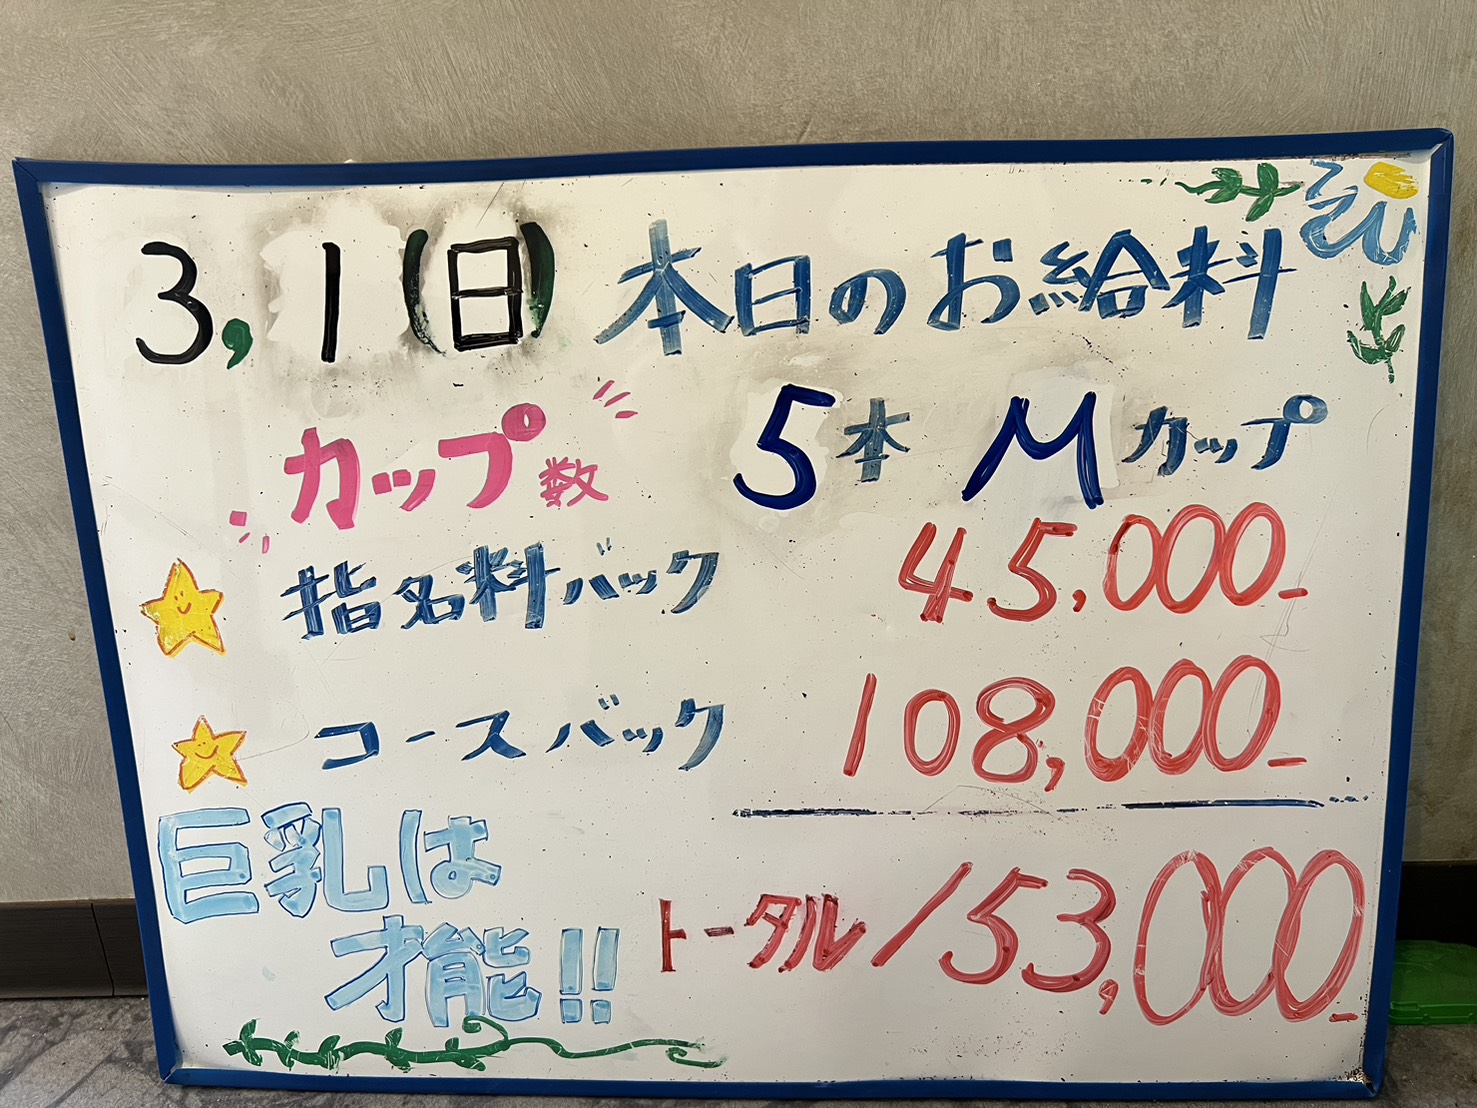 3,1(日) 本日のお給料
カップ数 5本 Mカップ
指名料バック 45,000-
コースバック 108,000-
巨乳は
才能!! トータル 153,000-